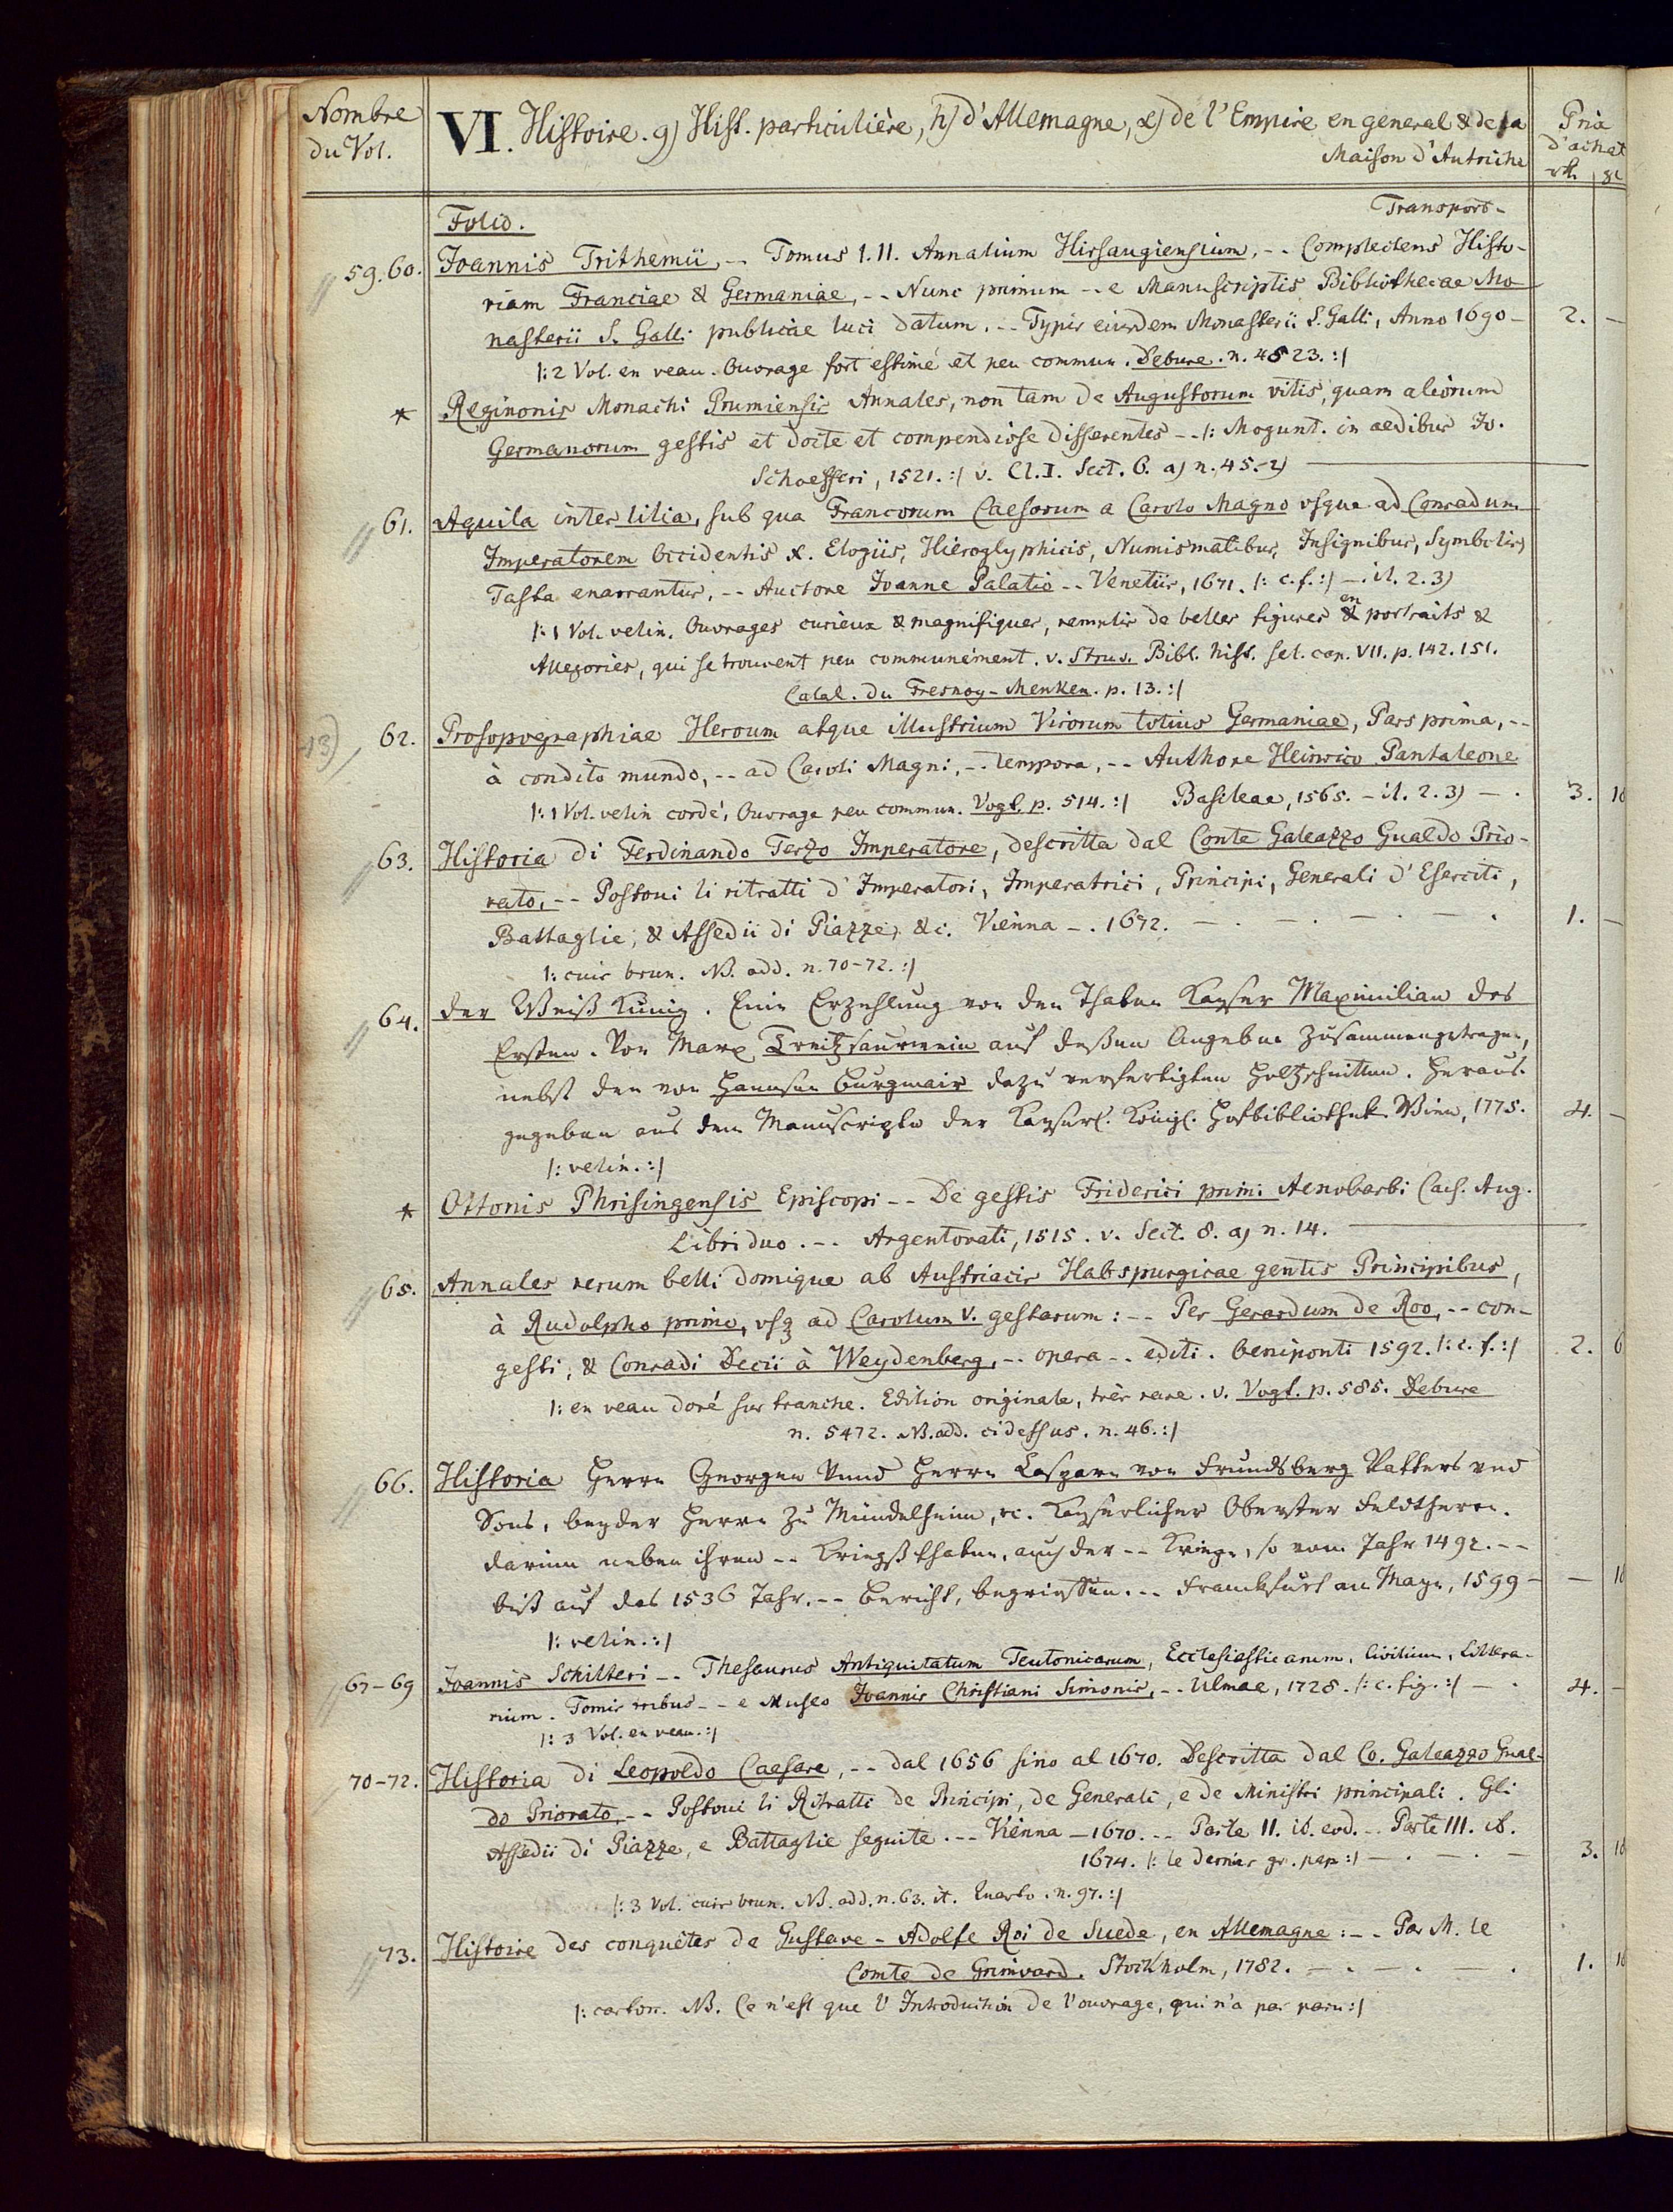 Nombre du Vol.
VI. Histoire. g) Hist. particulière, h) d'Allemagne, α) de l'Empire en general & de la
Maison d'Autriche
Prix d'achat
rth. gl
Folio.
Transport -
59. 60. Joannis Trithemii, -- Tomus I. II. Annalium Hirsaugiensium, -- Complectens Histo-
riam Franciae & Germaniae, -- Nunc primum -- e Manuscriptis Bibliothecae Mo-
nasterii S. Galli publicae luci datum. -- Typis eiusdem Monasterii S. Galli, Anno 1690 - 2. -
|: 2 Vol. en veau. Ouvrage fort estimé et peu commun. Debure. n. 4523. :|
* Reginonis Monachi Prumiensis Annales, non tam de Augustorum vitis, quam aliorum
Germanorum gestis et docte et compendiose disserentes -- |: Mogunt. in aedibus Jo.
Schoefferi, 1521. :| v. Cl. I. Sect. 6. a) n. 45.-2)
61. Aquila inter lilia, sub qua Francorum Caesarum a Carolo Magno vsque ad Conradum
Imperatorem Occidentis X. Elogiis, Hieroglyphicis, Numismatibus, Insignibus, Symbolis,
Fasta enarrantur, -- Auctore Joanne Palatio -- Venetiis, 1671. |: c. f. :| -. it. 2. 3)
|: 1 Vol. velin. Ouvrages curieux & magnifiques, remplis de belles figures & en portraits &
Allegories, qui se trouvent peu communément. v. Struv. Bibl. hist. sel. cap. VII. p. 142. 151.
Catal. du Fresnoy - Menken. p. 13. :|
13) 62. Prosopographiae Heroum atque illustrium Virorum totius Germaniae, Pars prima, --
à condito mundo, -- ad Caroli Magni, -- tempora, -- Authore Heinrico Pantaleone
|: 1 Vol. velin cordé, Ouvrage peu commun. Vogt. p. 514. :| Basileae, 1565. - it. 2. 3) - . 3. 16
63. Historia di Ferdinando Terzo Imperatore, descritta dal Conte Galeazzo Gualdo Prio-
rato, -- Postovi li ritratti d'Imperatori, Imperatrici, Principi, Generali d'Eserciti,
Battaglie, & Assedii di Piazze, &c. Vienna -. 1672. - . - . - . - . 1. -
|: cuir brun. NB. add. n. 70-72. :|
64. der Weiß Kunig. Eine Erzehlung von den Thaten Kayser Maximilian des
Ersten. Von Marx Treitzsaurwein auf deßen Angeben zusammengetragen,
nebst den von Hannsen Burgmair dazu verfertigten Holtzschnitten. Heraus-
gegeben aus dem Manuscripte der Kayserl. Königl. Hofbibliothek. Wien, 1775. 4. -
|: velin. :|
* Ottonis Phrisingensis Episcopi -- De gestis Friderici primi Aenobarbi Caes. Aug.
Libri duo. -- Argentorati, 1515. v. Sect. 8. a) n. 14.
65. Annales rerum belli domique ab Austriacis Habspurgicae gentis Principibus,
à Rudolpho primo, vsq ad Carolum V. gestarum: -- Per Gerardum de Roo, -- con-
gesti, & Conradi Decii à Weydenberg, -- opera -- editi. Oeniponti 1592. |: c. f. :| 2. 6
|: en veau doré sur tranche. Edition originale, très rare. v. Vogt. p. 585. Debure
n. 5472. NB. add. cidessus. n. 46. :|
66. Historia Herrn Georgen Vnnd Herrn Casparn von Frundsberg Vatters vnd
Sons, beyder Herrn zu Mündelheim, &c. Keyserlicher Oberster Feldtherrn.
darinn neben ihren -- Kriegßthaten, auch der -- Kriege, so vom Jahr 1492. --
biß auf das 1536 Jahr. -- Bericht, begrieffen. -- Franckfurt am Mayn, 1599 - - 16
|: velin. :|
67-69 Joannis Schilteri -- Thesaurus Antiquitatum Teutonicarum, Ecclesiasticarum, Civilium, Littera-
rium. Tomis tribus -- e Museo Joannis Christiani Simonis, -- Ulmae, 1728. |: c. fig. :| - . 4. -
|: 3 Vol. en veau. :|
70-72. Historia di Leopoldo Caesare, -- dal 1656 sino al 1670. Descritta dal Co. Galeazzo Gual-
do Priorato, -- Postovi li Ritratti de Principi, de Generali, e de Ministri principali. Gli
Assedii di Piazze, e Battaglie seguite. -- Vienna - 1670. -- Parte II. ib. eod. -- Parte III. ib.
1674. |: le dernier gr. pap :| - . - . - 3. 16
|: 3 Vol. cuir brun. NB. add. n. 63. it. Quarto. n. 97. :|
73. Histoire des conquêtes de Gustave-Adolfe Roi de Suede, en Allemagne: -- Par M. le
Comte de Grimoard. Stockholm, 1782. - . - . - . 1. 16
|: carton. NB. Ce n'est que l'Introduction de l'ouvrage, qui n'a pas paru :|